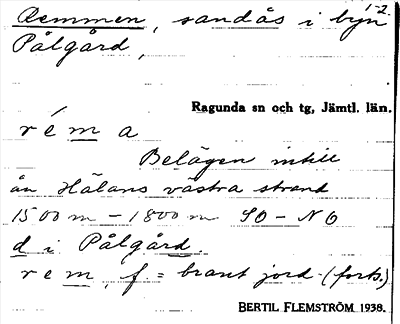 1-2.
Remmen, sandås i byn
Pålgård,
Ragunda sn och tg, Jämtl. län.
réma
Belägen intill
ån Hälans västra strand
1500 m – 1800 m SO – NO
d i Pålgård.
rem, f = brant jord- (forts.)
BERTIL FLEMSTRÖM 1938.